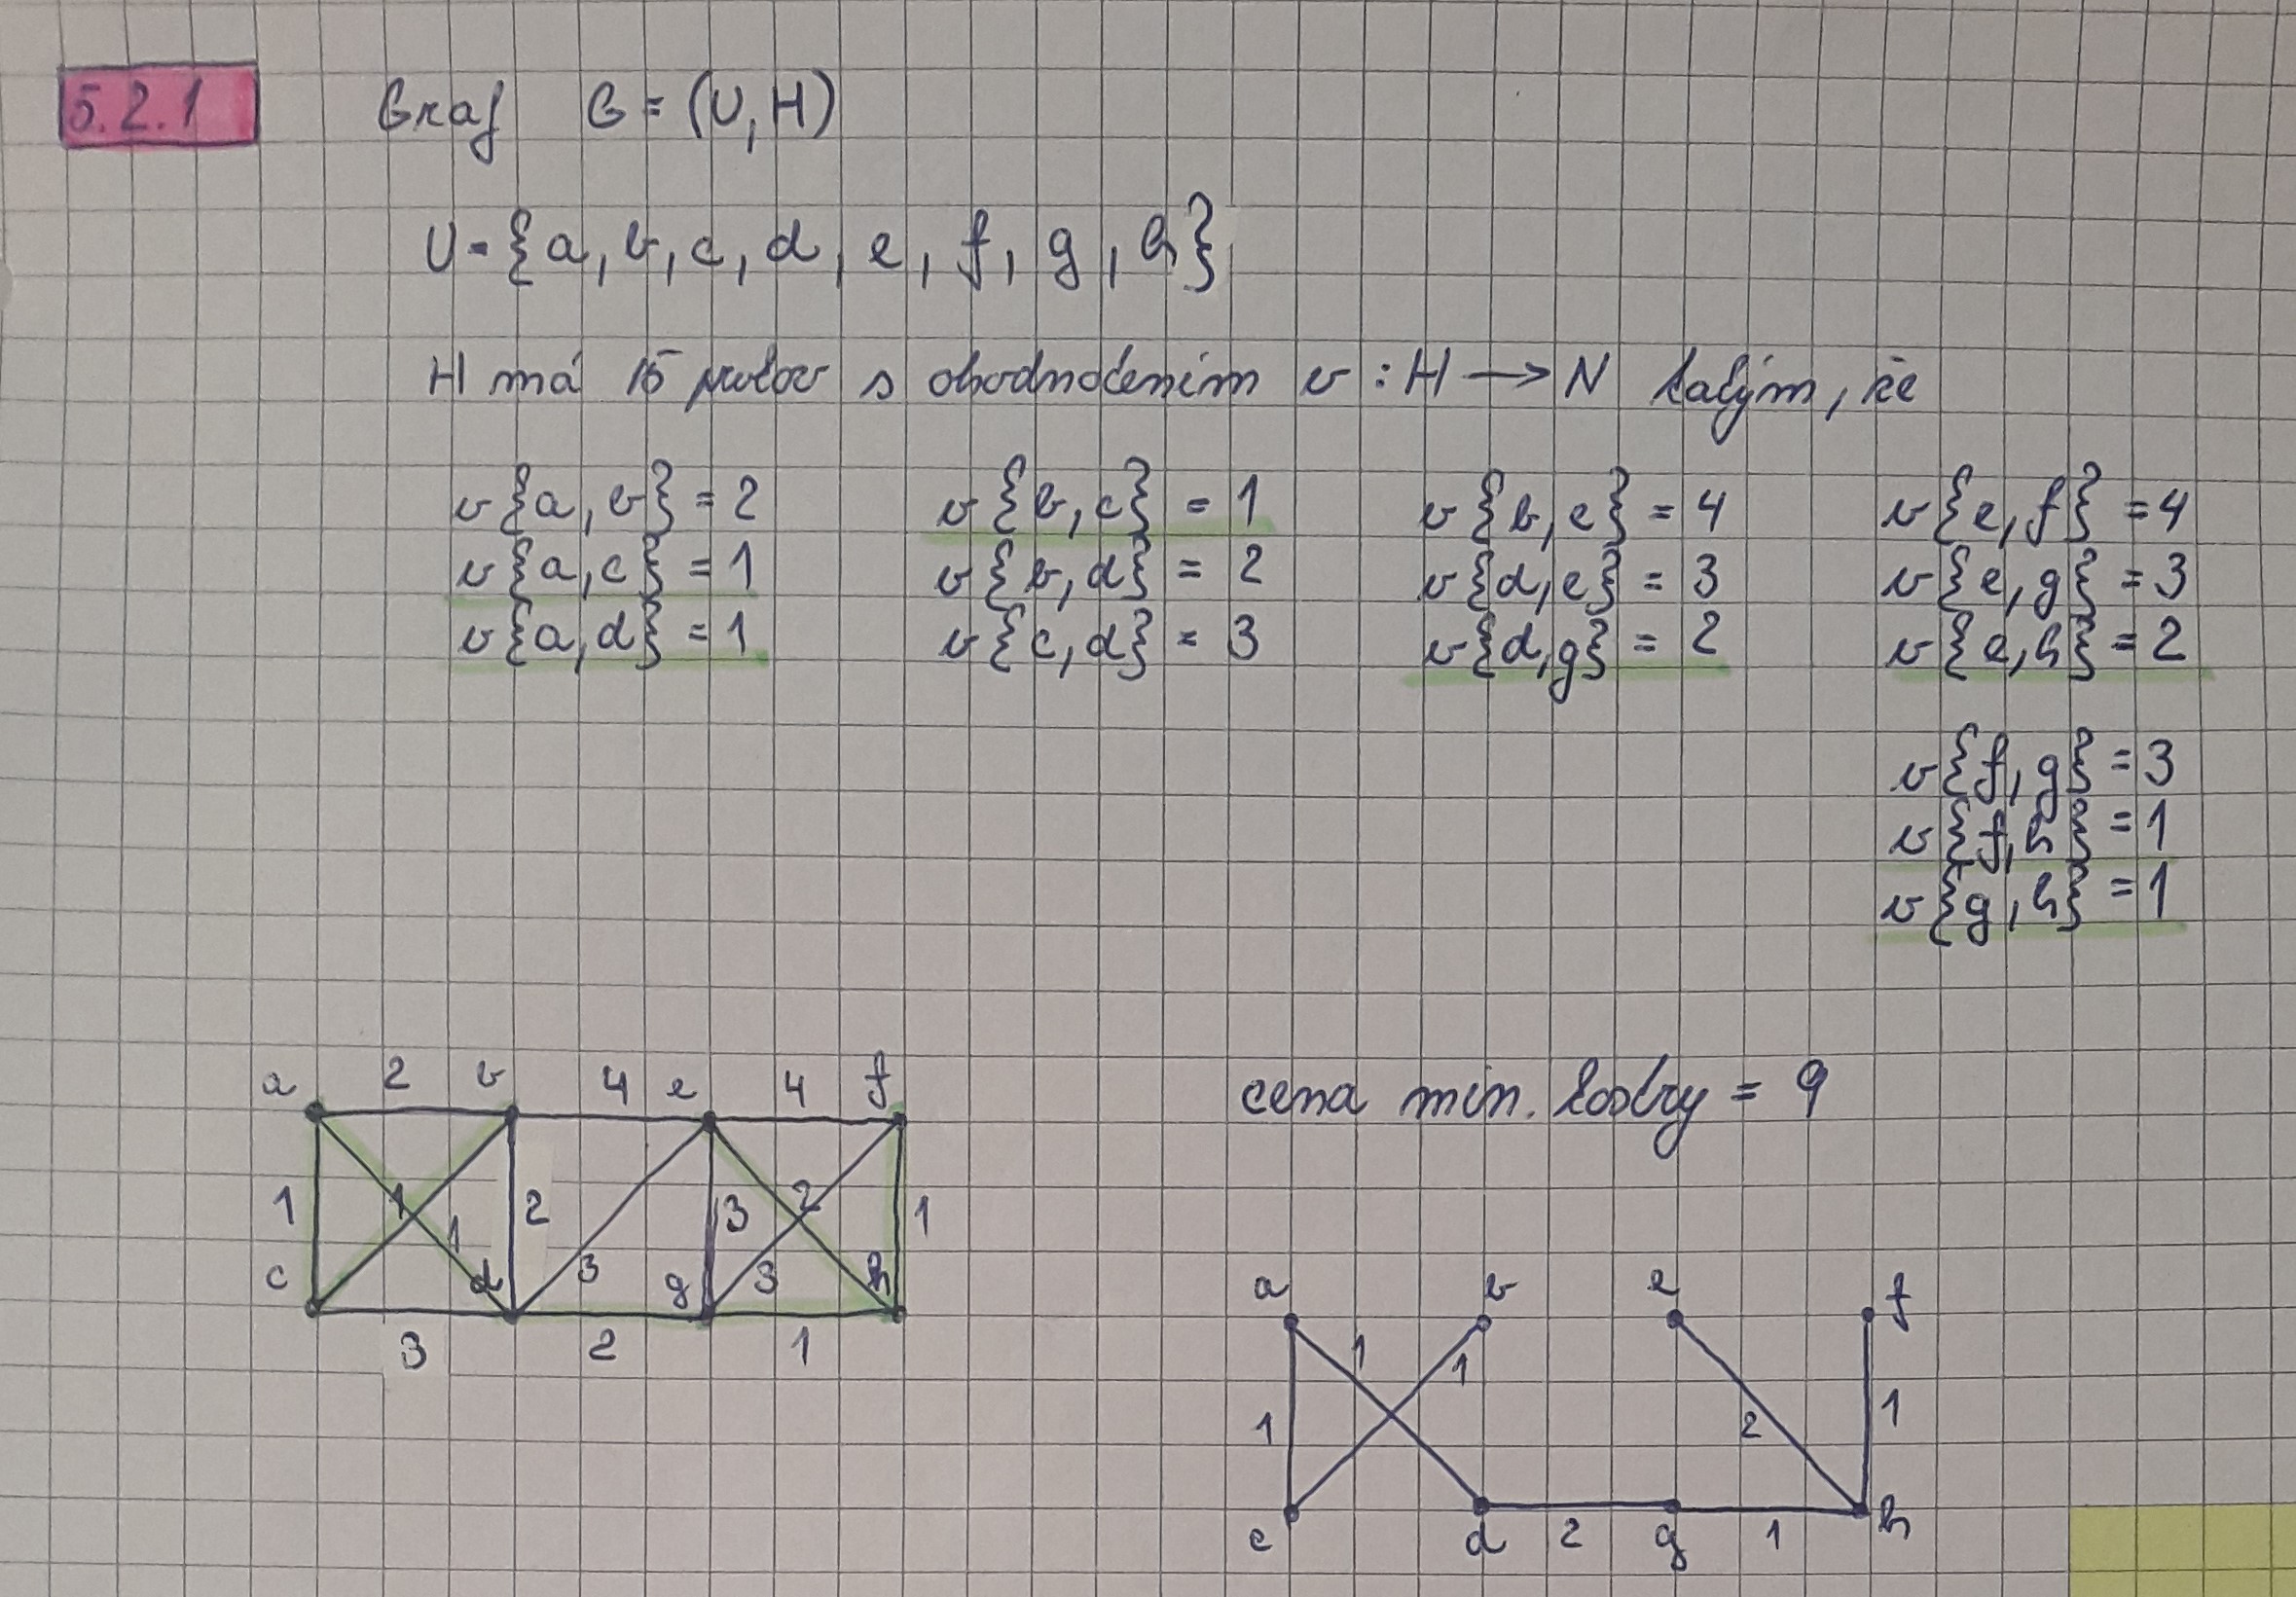 5.2.1 Graf G = (U, H)
U = {a, b, c, d, e, f, g, h}
H má 15 prvkov s ohodnotením v : H → N takým, že
v{a, b} = 2 v{b, c} = 1 v{b, e} = 4 v{e, f} = 4
v{a, c} = 1 v{b, d} = 2 v{d, e} = 3 v{e, g} = 3
v{a, d} = 1 v{c, d} = 3 v{d, g} = 2 v{e, h} = 2
v{f, g} = 3
v{f, h} = 1
v{g, h} = 1
a 2 b 4 e 4 f
1 1 1 2 3 3 2 3 1
c d g h
3 2 1
cena min. kostry = 9
a b e f
1 1 1 2 1
c d 2 g 1 h